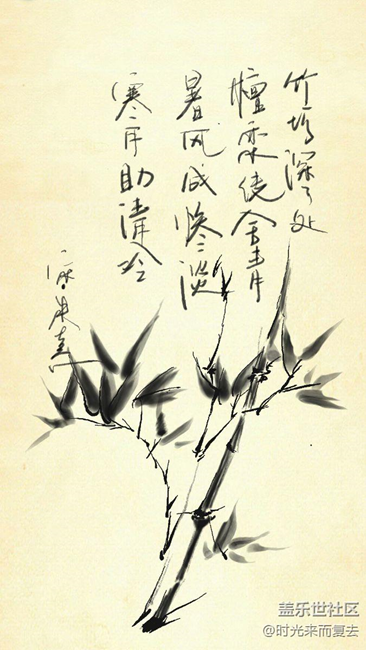 竹坞深深处
檀栾绕舍青
暑风成惨淡
寒月助清冷
宋朱熹
盖乐世社区
@时光来而复去